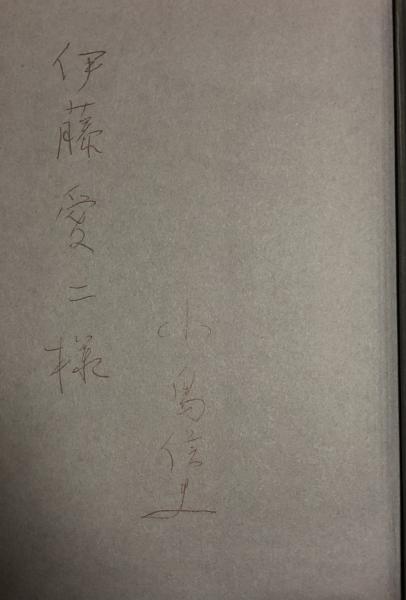 小島信夫
伊藤愛二様